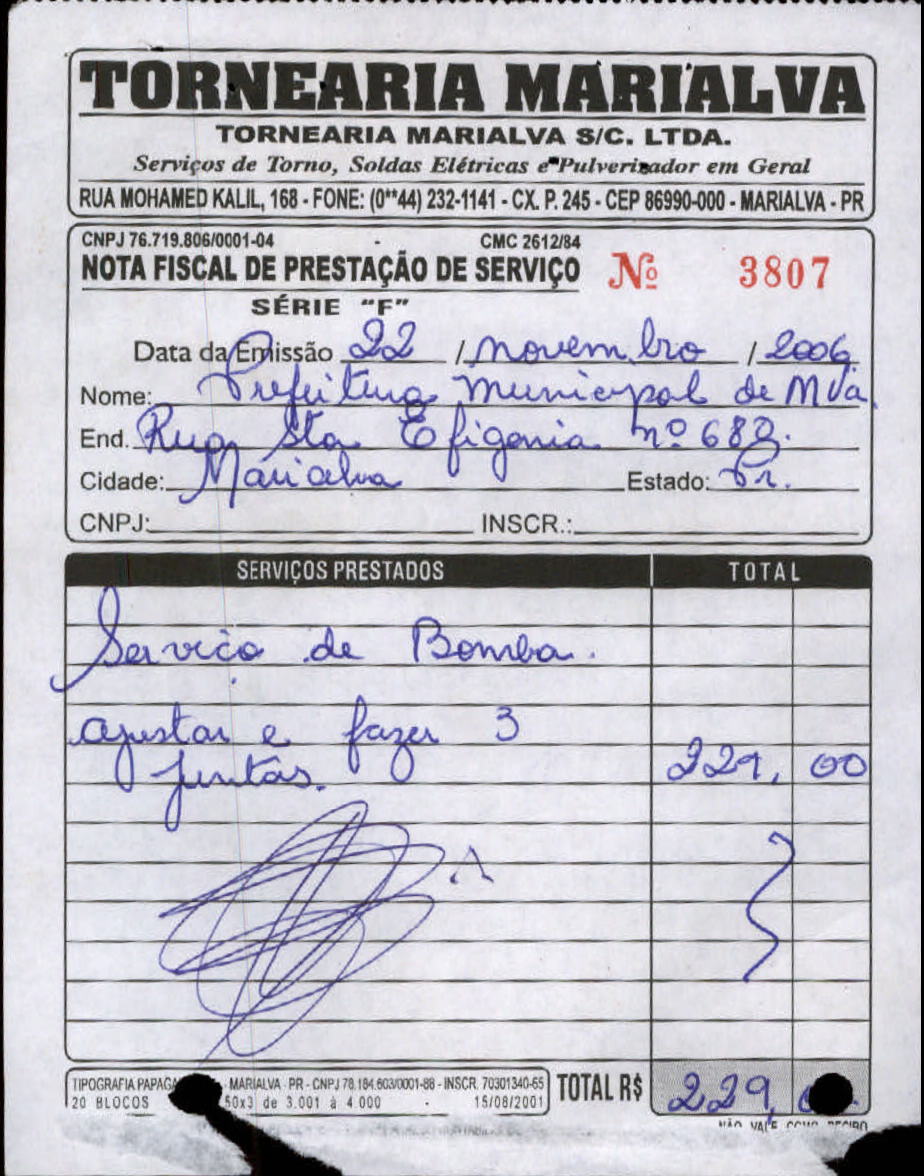 TORNEARIA MARIALVA
TORNEARIA MARIALVA S/C. LTDA.
Serviços de Torno, Soldas Elétricas e Pulverizador em Geral
RUA MOHAMED KALIL, 168 - FONE: (0**44) 232-1141 - CX. P. 245 - CEP 86990-000 - MARIALVA - PR
CNPJ 76.719.806/0001-04 CMC 2612/84
NOTA FISCAL DE PRESTAÇÃO DE SERVIÇO Nº 3807
SÉRIE "F"
Data da Emissão 22 / novembro / 2006
Nome: Prefeitura Municipal de Mva.
End. Rua Sta Efigenia nº 680.
Cidade: Marialva Estado: Pr.
CNPJ: INSCR.:
SERVIÇOS PRESTADOS TOTAL
Serviço de Bomba.
ajustar e fazer 3
juntas. 229,00
TIPOGRAFIA - MARIALVA - PR - CNPJ 78.184.603/0001-88 - INSCR. 70301340-65
20 BLOCOS 50x3 de 3.001 à 4.000 - 15/08/2001
TOTAL R$ 229,
NÃO VALE COMO RECIBO